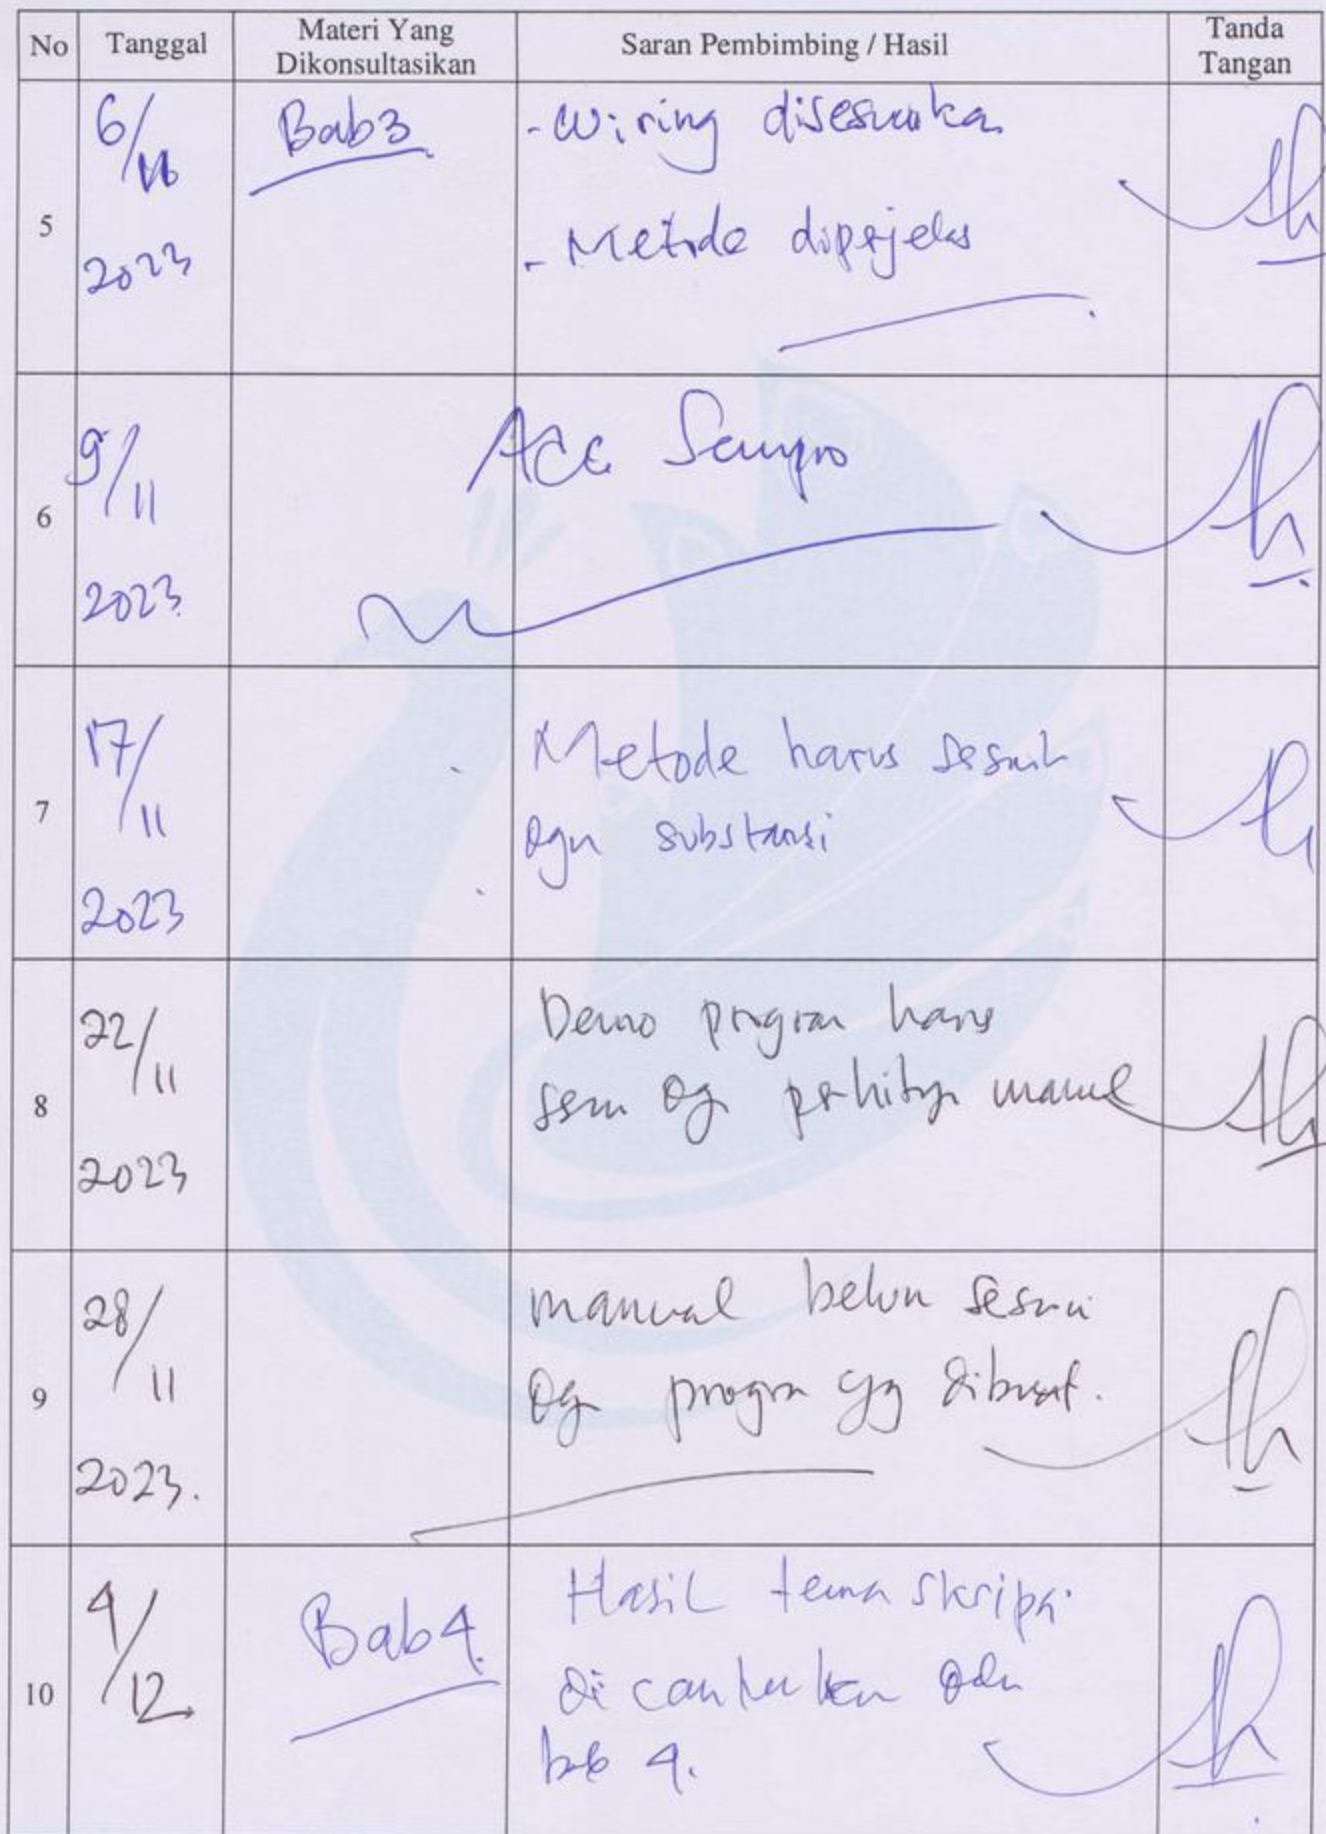 No Tanggal Materi Yang Dikonsultasikan Saran Pembimbing / Hasil Tanda Tangan
5
6/11
2023
Bab3
- Wiring disesuaikan
- Metode diperjelas
6
9/11
2023
Acc Sempro
7
17/11
2023
Metode harus sesuai
dgn substansi
8
22/11
2023
Demo program harus
manual
9
28/11
2023.
manual belum sesuai
dg program yg dibuat.
10
4/12
Bab 4.
Hasil skripsi
dicantumkan
bab 4.